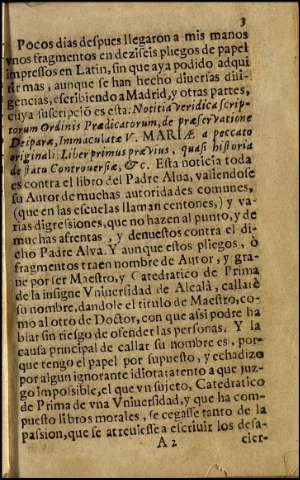 3
Pocos dias despues llegaron a mis manos
vnos fragmentos en dezisèis pliegos de papel
impressos en Latin, sin que aya podido adqui
rir mas, aunque se han hecho diuersas dili-
gencias, escribiendo a Madrid, y otras partes,
cuya suscripciõ es esta. Notitia veridica scrip-
torum Ordinis Prædicatorum, de præseruatione
Deiparæ, Immaculatæ V. MARIÆ a peccato
originali. Liber primus prævius, quasi historia
de statu Controuersiæ, &c. Esta noticia toda
es contra el libro del Padre Alua, valiendose
su Autor de muchas autoridades comunes,
(que en las escuelas llaman centones,) y va-
rias digressiones, que no hazen al punto, y de
muchas afrentas, y denuestos contra el di-
cho Padre Alva. Y aunque estos pliegos, ò
fragmentos traen nombre de Autor, y gra-
ue por ser Maestro, y Catedratico de Prima
de la insigne Vniuersidad de Alcalà, callarè
su nombre, dandole el titulo de Maestro, co-
mo al otro de Doctor, con que assi podre ha
blar sin riesgo de ofender las personas. Y la
causa principal de callar su nombre es, por-
que tengo el papel por supuesto, y echadizo
por algun ignorante idiota: atento a que juz-
go impossible, el que vn sujeto, Catedratico
de Prima de vna Vniuersidad, y que ha com-
puesto libros morales, se cegasse tanto de la
passion, que se atreuiesse a escriuir los desa-
A 2 cier-